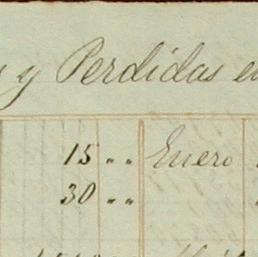 y Perdidas
15 " " Enero
30 " "